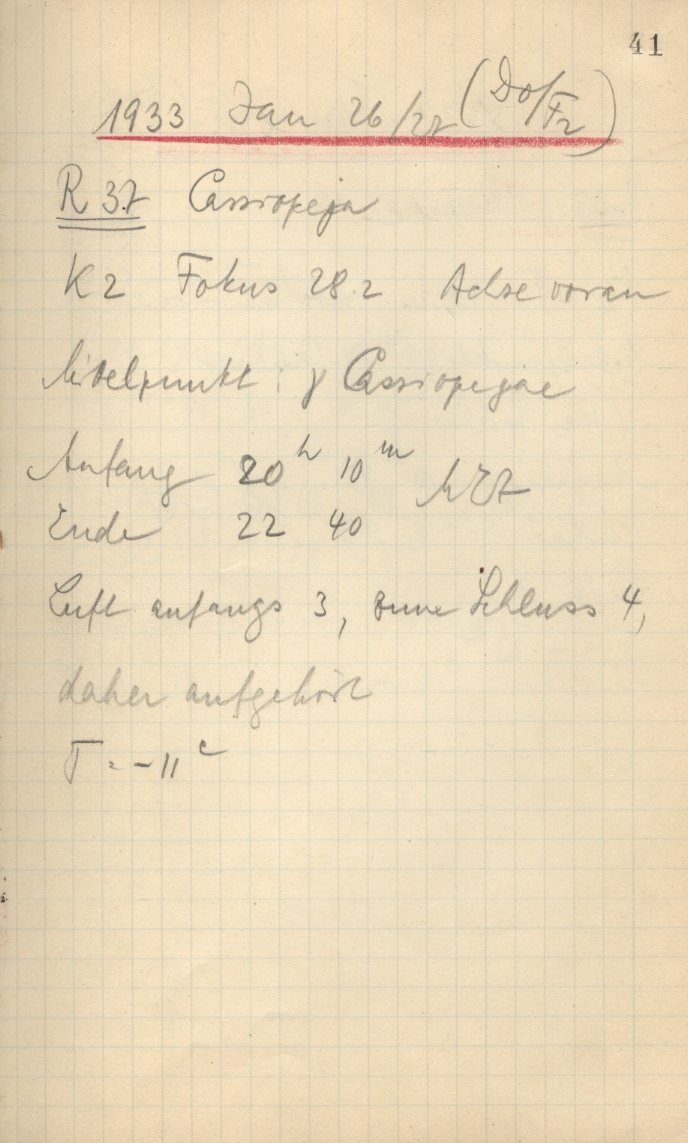 41
1933 Jan 26/27 (Do/Fr)
R 37 Cassiopeja
K2 Fokus 28.2 Achse voran
Mittelpunkt: γ Cassiopejae
Anfang 20h 10m MEZ
Ende 22 40
Luft anfangs 3, zum Schluss 4,
daher aufgehört
T = -11 c